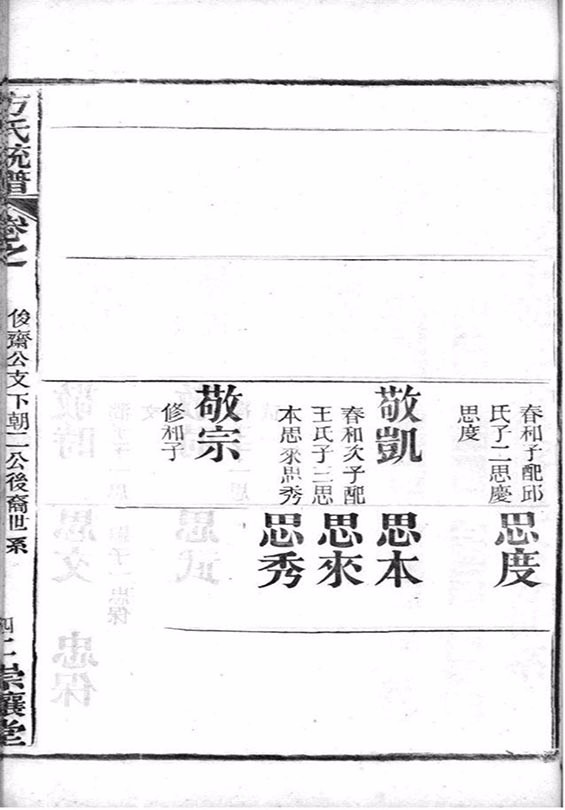 春和子配邱
氏子二思慶
思度
思度
敬凱
春和次子配
王氏子三思
本思來思秀
思本
思來
思秀
敬宗
修和子
方氏統譜
卷之
俊齋公文下朝二公後裔世系
四
崇讓堂